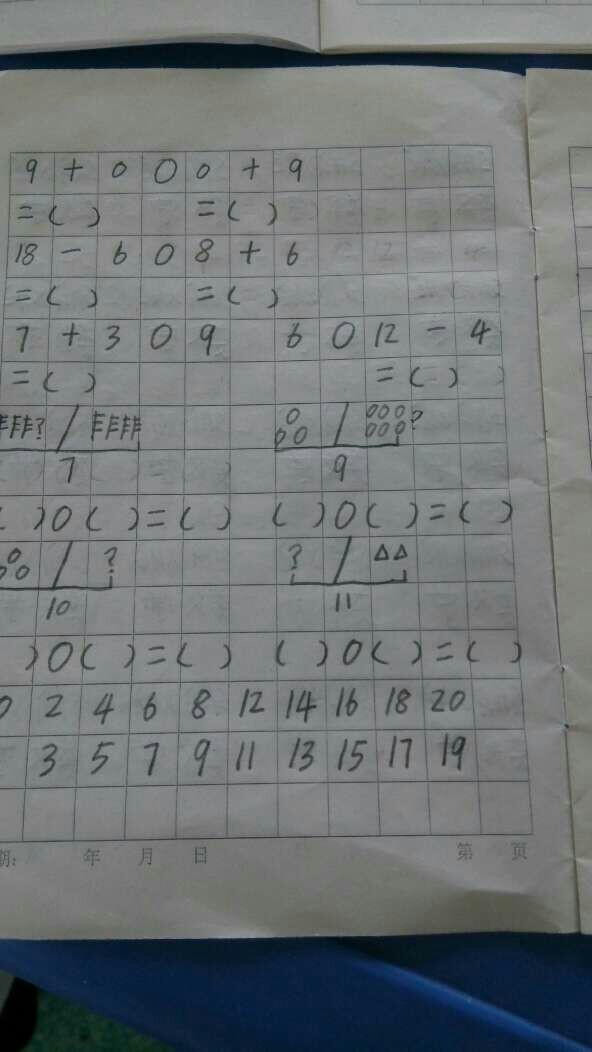 9 + 0 ○ 0 + 9
= ( ) = ( )
18 - 6 ○ 8 + 6
= ( ) = ( )
7 + 3 ○ 9 6 ○ 12 - 4
= ( ) = ( )
? / /?
7 9
( ) ○ ( ) = ( ) ( ) ○ ( ) = ( )
/ ? ? /
10 11
) ○ ( ) = ( ) ( ) ○ ( ) = ( )
0 2 4 6 8 12 14 16 18 20
3 5 7 9 11 13 15 17 19
期: 年 月 日 第 页